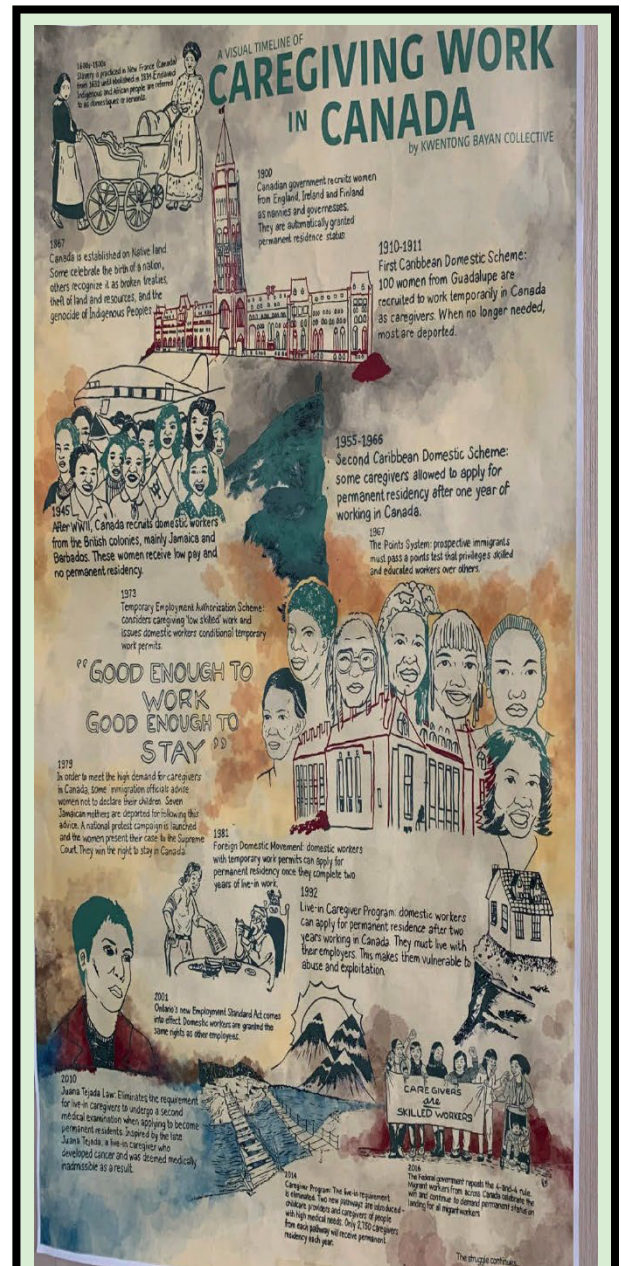 A VISUAL TIMELINE OF
CAREGIVING WORK
IN CANADA
by KWENTONG BAYAN COLLECTIVE
1600s-1800s
Slavery is practiced in New France (Canada)
from 1632 until abolished in 1834. Enslaved
Indigenous and African people are referred
to as domestiques or servants.
1867
Canada is established on Native land.
Some celebrate the birth of a nation,
others recognize it as broken treaties,
theft of land and resources, and the
genocide of Indigenous Peoples
1900
Canadian government recruits women
from England, Ireland and Finland
as nannies and governesses.
They are automatically granted
permanent residence status
1910-1911
First Caribbean Domestic Scheme:
100 women from Guadalupe are
recruited to work temporarily in Canada
as caregivers. When no longer needed,
most are deported.
1945
After WWII, Canada recruits domestic workers
from the British colonies, mainly Jamaica and
Barbados. These women receive low pay and
no permanent residency.
1955-1966
Second Caribbean Domestic Scheme:
some caregivers allowed to apply for
permanent residency after one year of
working in Canada.
1967
The Points System: prospective immigrants
must pass a points test that privileges skilled
and educated workers over others.
1973
Temporary Employment Authorization Scheme:
considers caregiving 'low skilled' work and
issues domestic workers conditional temporary
work permits.
"GOOD ENOUGH TO
WORK
GOOD ENOUGH TO
STAY"
1979
In order to meet the high demand for caregivers
in Canada, some immigration officials advise
women not to declare their children. Seven
Jamaican mothers are deported for following this
advice. A national protest campaign is launched
and the women present their case to the Supreme
Court. They win the right to stay in Canada.
1981
Foreign Domestic Movement: domestic workers
with temporary work permits can apply for
permanent residency once they complete two
years of live-in work.
1992
Live-in Caregiver Program: domestic workers
can apply for permanent residence after two
years working in Canada. They must live with
their employers. This makes them vulnerable to
abuse and exploitation.
2001
Ontario's new Employment Standard Act comes
into effect. Domestic workers are granted the
same rights as other employees.
2010
Juana Tejada Law: Eliminates the requirement
for live-in caregivers to undergo a second
medical examination when applying to become
permanent residents. Inspired by the late
Juana Tejada, a live-in caregiver who
developed cancer and was deemed medically
inadmissible as a result.
2014
Caregiver Program: The live-in requirement
is eliminated. Two new pathways are introduced -
childcare providers and caregivers of people
with high medical needs. Only 2,750 caregivers
from each pathway will receive permanent
residency each year.
CAREGIVERS
are
SKILLED WORKERS
2016
The Federal government repeals the 4-and-4 rule.
Migrant workers from across Canada celebrate the
win and continue to demand permanent status on
landing for all migrant workers
The struggle continues...